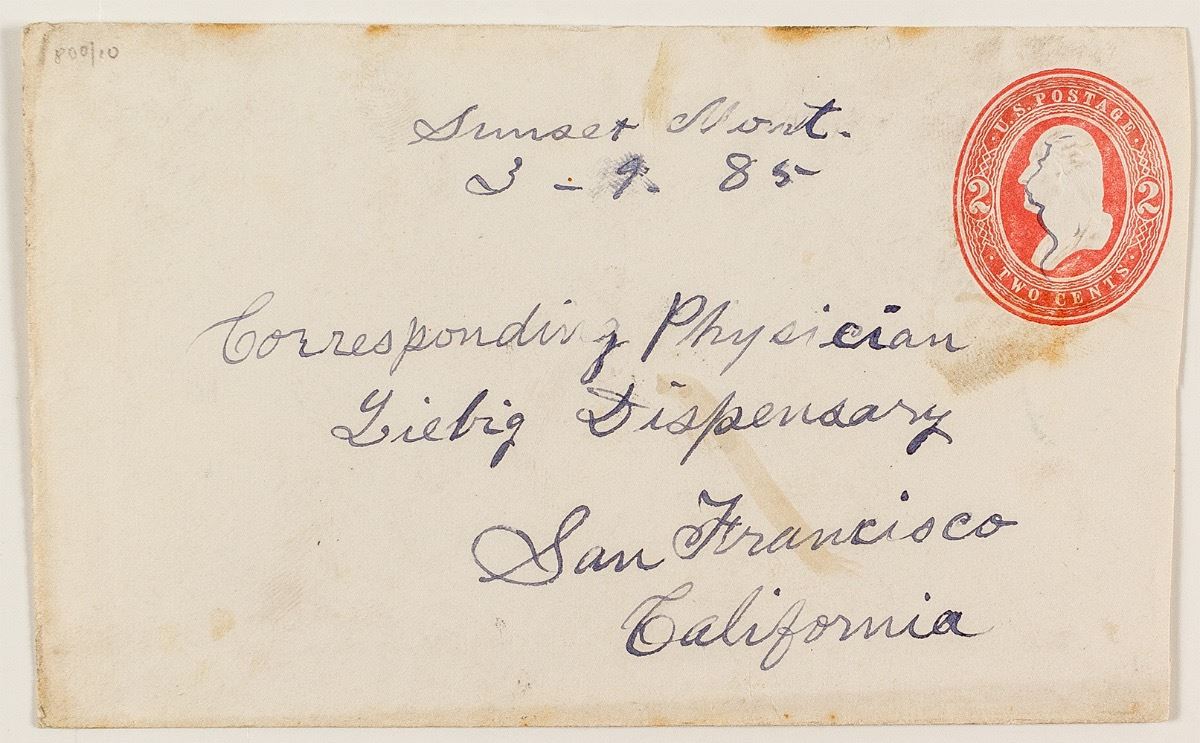 800/10
Sunset Mont.
3 - 9. 85
U.S. POSTAGE
2 2
TWO CENTS
Corresponding Physician
Liebig Dispensary
San Francisco
California